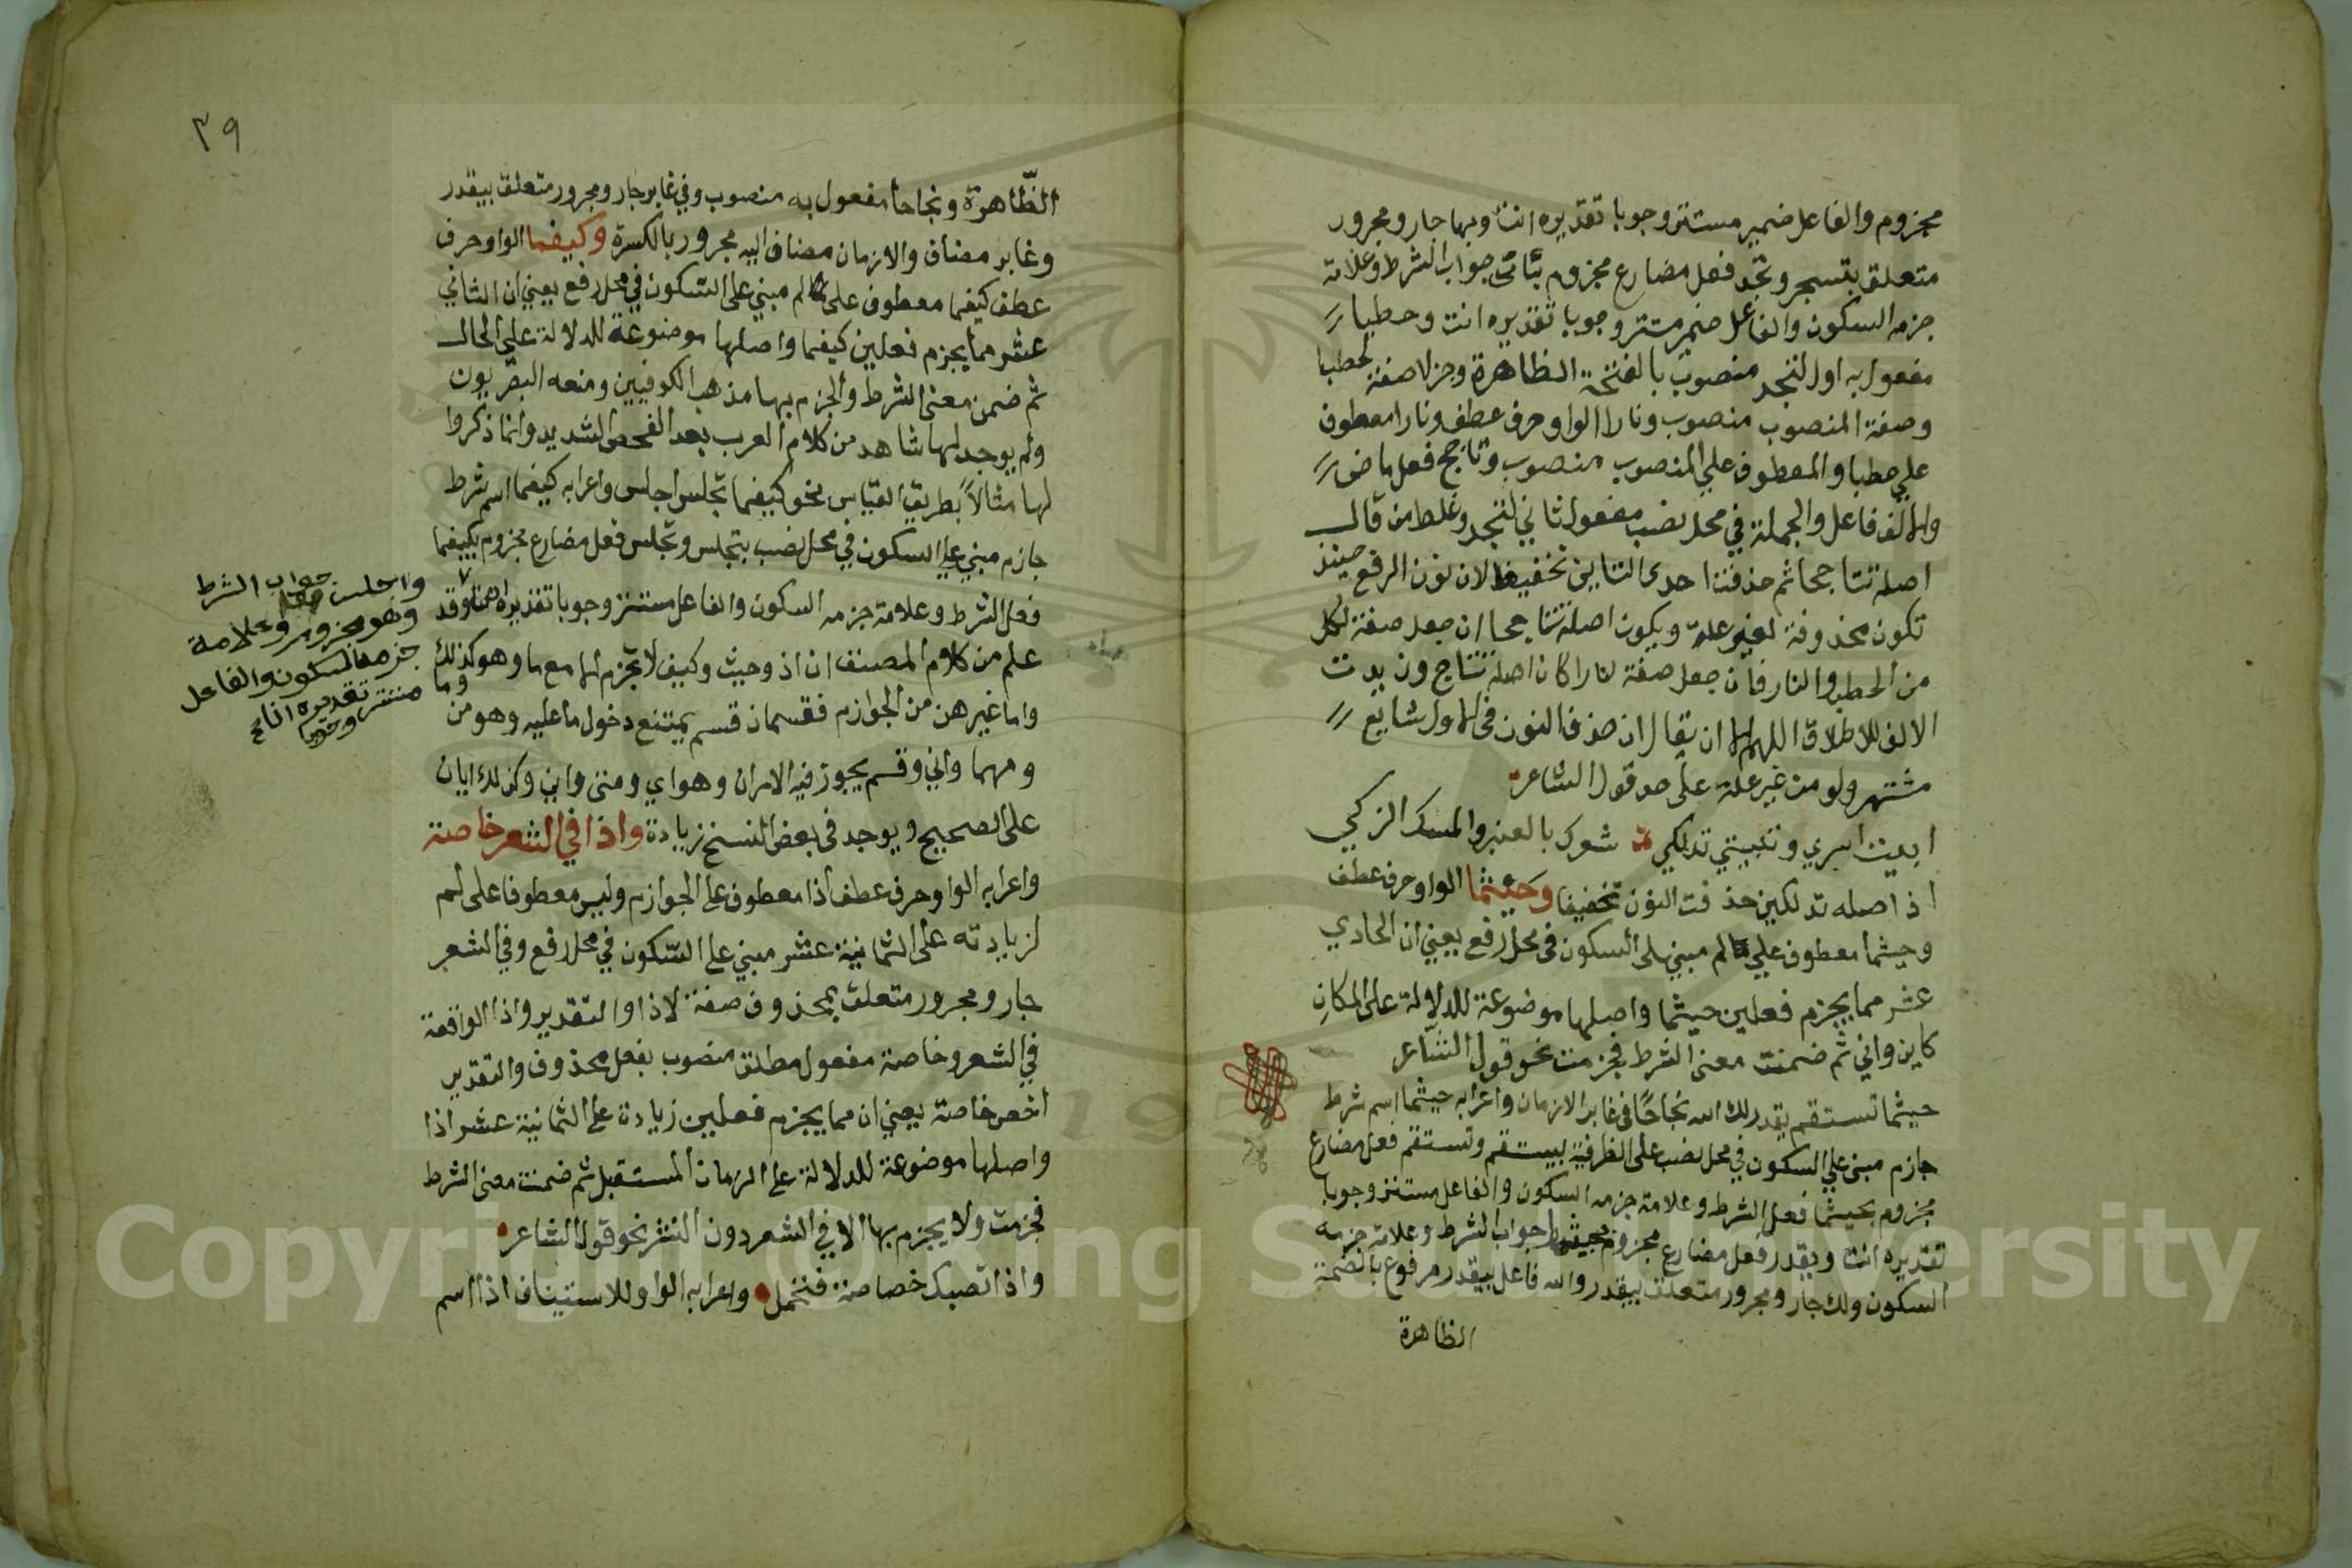 مجزوم والفاعل ضمير مستتر وجوبا تقديره انت وبها جار ومجرور
متعلق بتسجر وتجد فعل مضارع مجزوم بأنى جواب الشرط وعلامة
جزمه السكون والفاعل ضمير مستتر وجوبا تقديره انت وحطبا
مفعول به اول لتجد منصوب بالفتحة الظاهرة وجزلا صفة لحطبا
وصفة المنصوب منصوب ونارا الواو حرف عطف ونارا معطوف
علي حطبا والمعطوف علي المنصوب منصوب وتاجج فعل ماض
والالف فاعل والجملة في محل نصب مفعول ثاني لتجد وغلط من قال
اصله تتاججا ثم حذفت احدى التاين تخفيفا لان نون الرفع حينئذ
تكون محذوفة لغير علة ويكون اصله تتاججا ان جعل صفة لكل
من الحطب والنار فان جعل صفة لنارا كان اصله تتاججن بدت
الالف للاطلاق اللهم الا ان يقال ان حذف النون في الاول شايع
مشتهر ولو من غير علة على حد قول الشاعر
ابيت اسري وتبيتي تدلكي شعرك بالعنبر والمسك الزكي
اذ اصله تدلكين حذفت النون تخفيفا وحيثما الواو حرف عطف
وحيثما معطوف علي لم مبني على السكون في محل رفع يعني ان الحادي
عشر مما يجزم فعلين حيثما واصلها موضوعة للدلالة على المكان
كاين واني ثم ضمنت معنى الشرط فجزمت نحو قول الشاعر
حيثما تستقم يقدر لك الله نجاحًا في غابر الازمان واعرابه حيثما اسم شرط
جازم مبني علي السكون في محل نصب على الظرفية بيستقم وتستقم فعل مضارع
مجزوم بحيثما فعل الشرط وعلامة جزمه السكون والفاعل مستتر وجوبا
تقديره انت ويقدر فعل مضارع مجزوم بحيثما جواب الشرط وعلامة جزمه
السكون ولك جار ومجرور متعلق بيقدر والله فاعل بيقدر مرفوع بالضمة
الظاهرة
٣٩
الظّاهرة ونجاحا مفعول به منصوب وفي غابر جار ومجرور متعلق بيقدر
وغابر مضاف والازمان مضاف اليه مجرور بالكسرة وكيفما الواو حرف
عطف كيفما معطوف على لم مبني على السّكون في محل رفع يعني ان الثاني
عشر مما يجزم فعلين كيفما واصلها موضوعة للدلالة على الحال
ثم ضمن معنى الشرط والجزم بها مذهب الكوفيين ومنعه البصريون
ولم يوجد لها شاهد من كلام العرب بعد الفحص الشديد وانما ذكروا
لها مثالاً بطريق القياس نحو كيفما تجلس اجلس واعرابه كيفما اسم شرط
جازم مبني على السكون في محل نصب بتجلس وتجلس فعل مضارع مجزوم بكيفما
فعل الشرط وعلامة جزمه السكون والفاعل مستتر وجوبا تقديره انت وقد
علم من كلام المصنف ان اذ وحيث وكيف لا تجزم الا مع ما وهو كذلك
واما غيرهن من الجوازم فقسمان قسم يمتنع دخول ما عليه وهو من وما
ومهما واني وقسم يجوز فيه الامران وهو اي ومتى واين وكذلك ايان
على الصحيح ويوجد في بعض النسخ زيادة واذا في الشعر خاصة
واعرابه الواو حرف عطف اذا معطوف على الجوازم وليس معطوفا على لم
لزيادته على الثمانية عشر مبني على السّكون في محل رفع وفي الشعر
جار ومجرور متعلق بمحذوف صفة لاذا والتقدير واذا الواقعة
في الشعر وخاصة مفعول مطلق منصوب بفعل محذوف والتقدير
اخص خاصة يعني ان مما يجزم فعلين زيادة على الثمانية عشر اذا
واصلها موضوعة للدلالة على الزمان المستقبل ثم ضمنت معنى الشرط
فجزمت ولا يجزم بها الا في الشعر دون النثر نحو قول الشاعر
واذا تصبك خصاصة فتحمل واعرابه الواو للاستيناف اذا اسم
واجلس جواب الشرط
وهو مجزوم وعلامة
جزمه السكون والفاعل
مستتر تقديره انا
Copyright © King Saud University